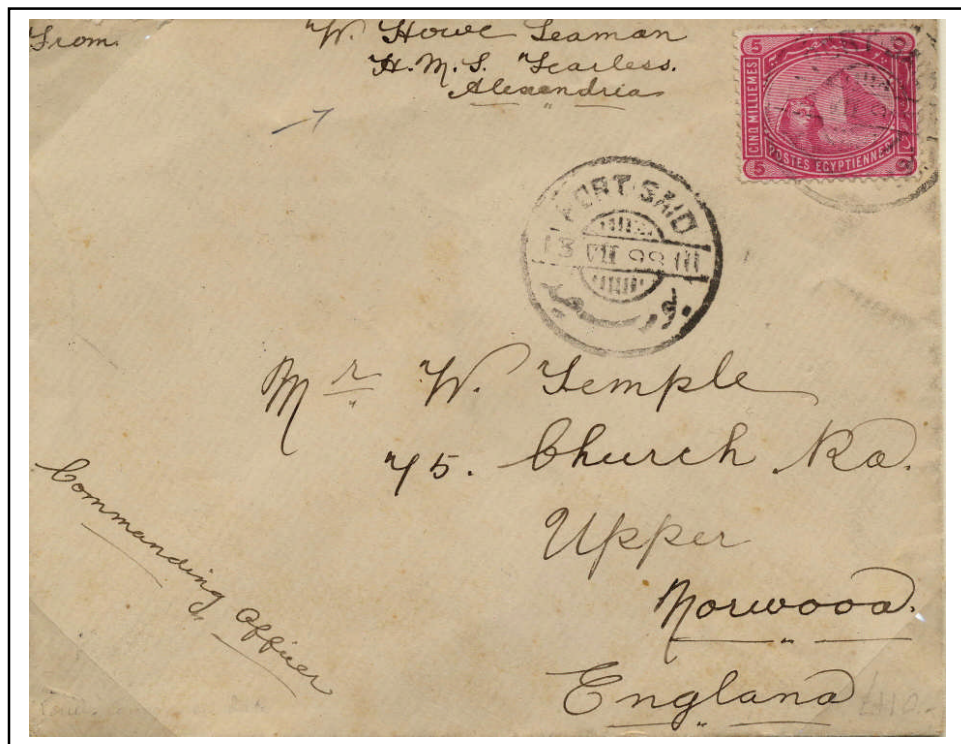 From W. Howe Seaman
H.M.S. "Fearless.
Alexandria
5 5
CINQ MILLIEMES
POSTES EGYPTIENNES
5
PORT-SAID
13 VII 99
بورسعيد
Mr W. Temple
45. Church Rd.
Upper
Norwood.
England
Commanding Officer